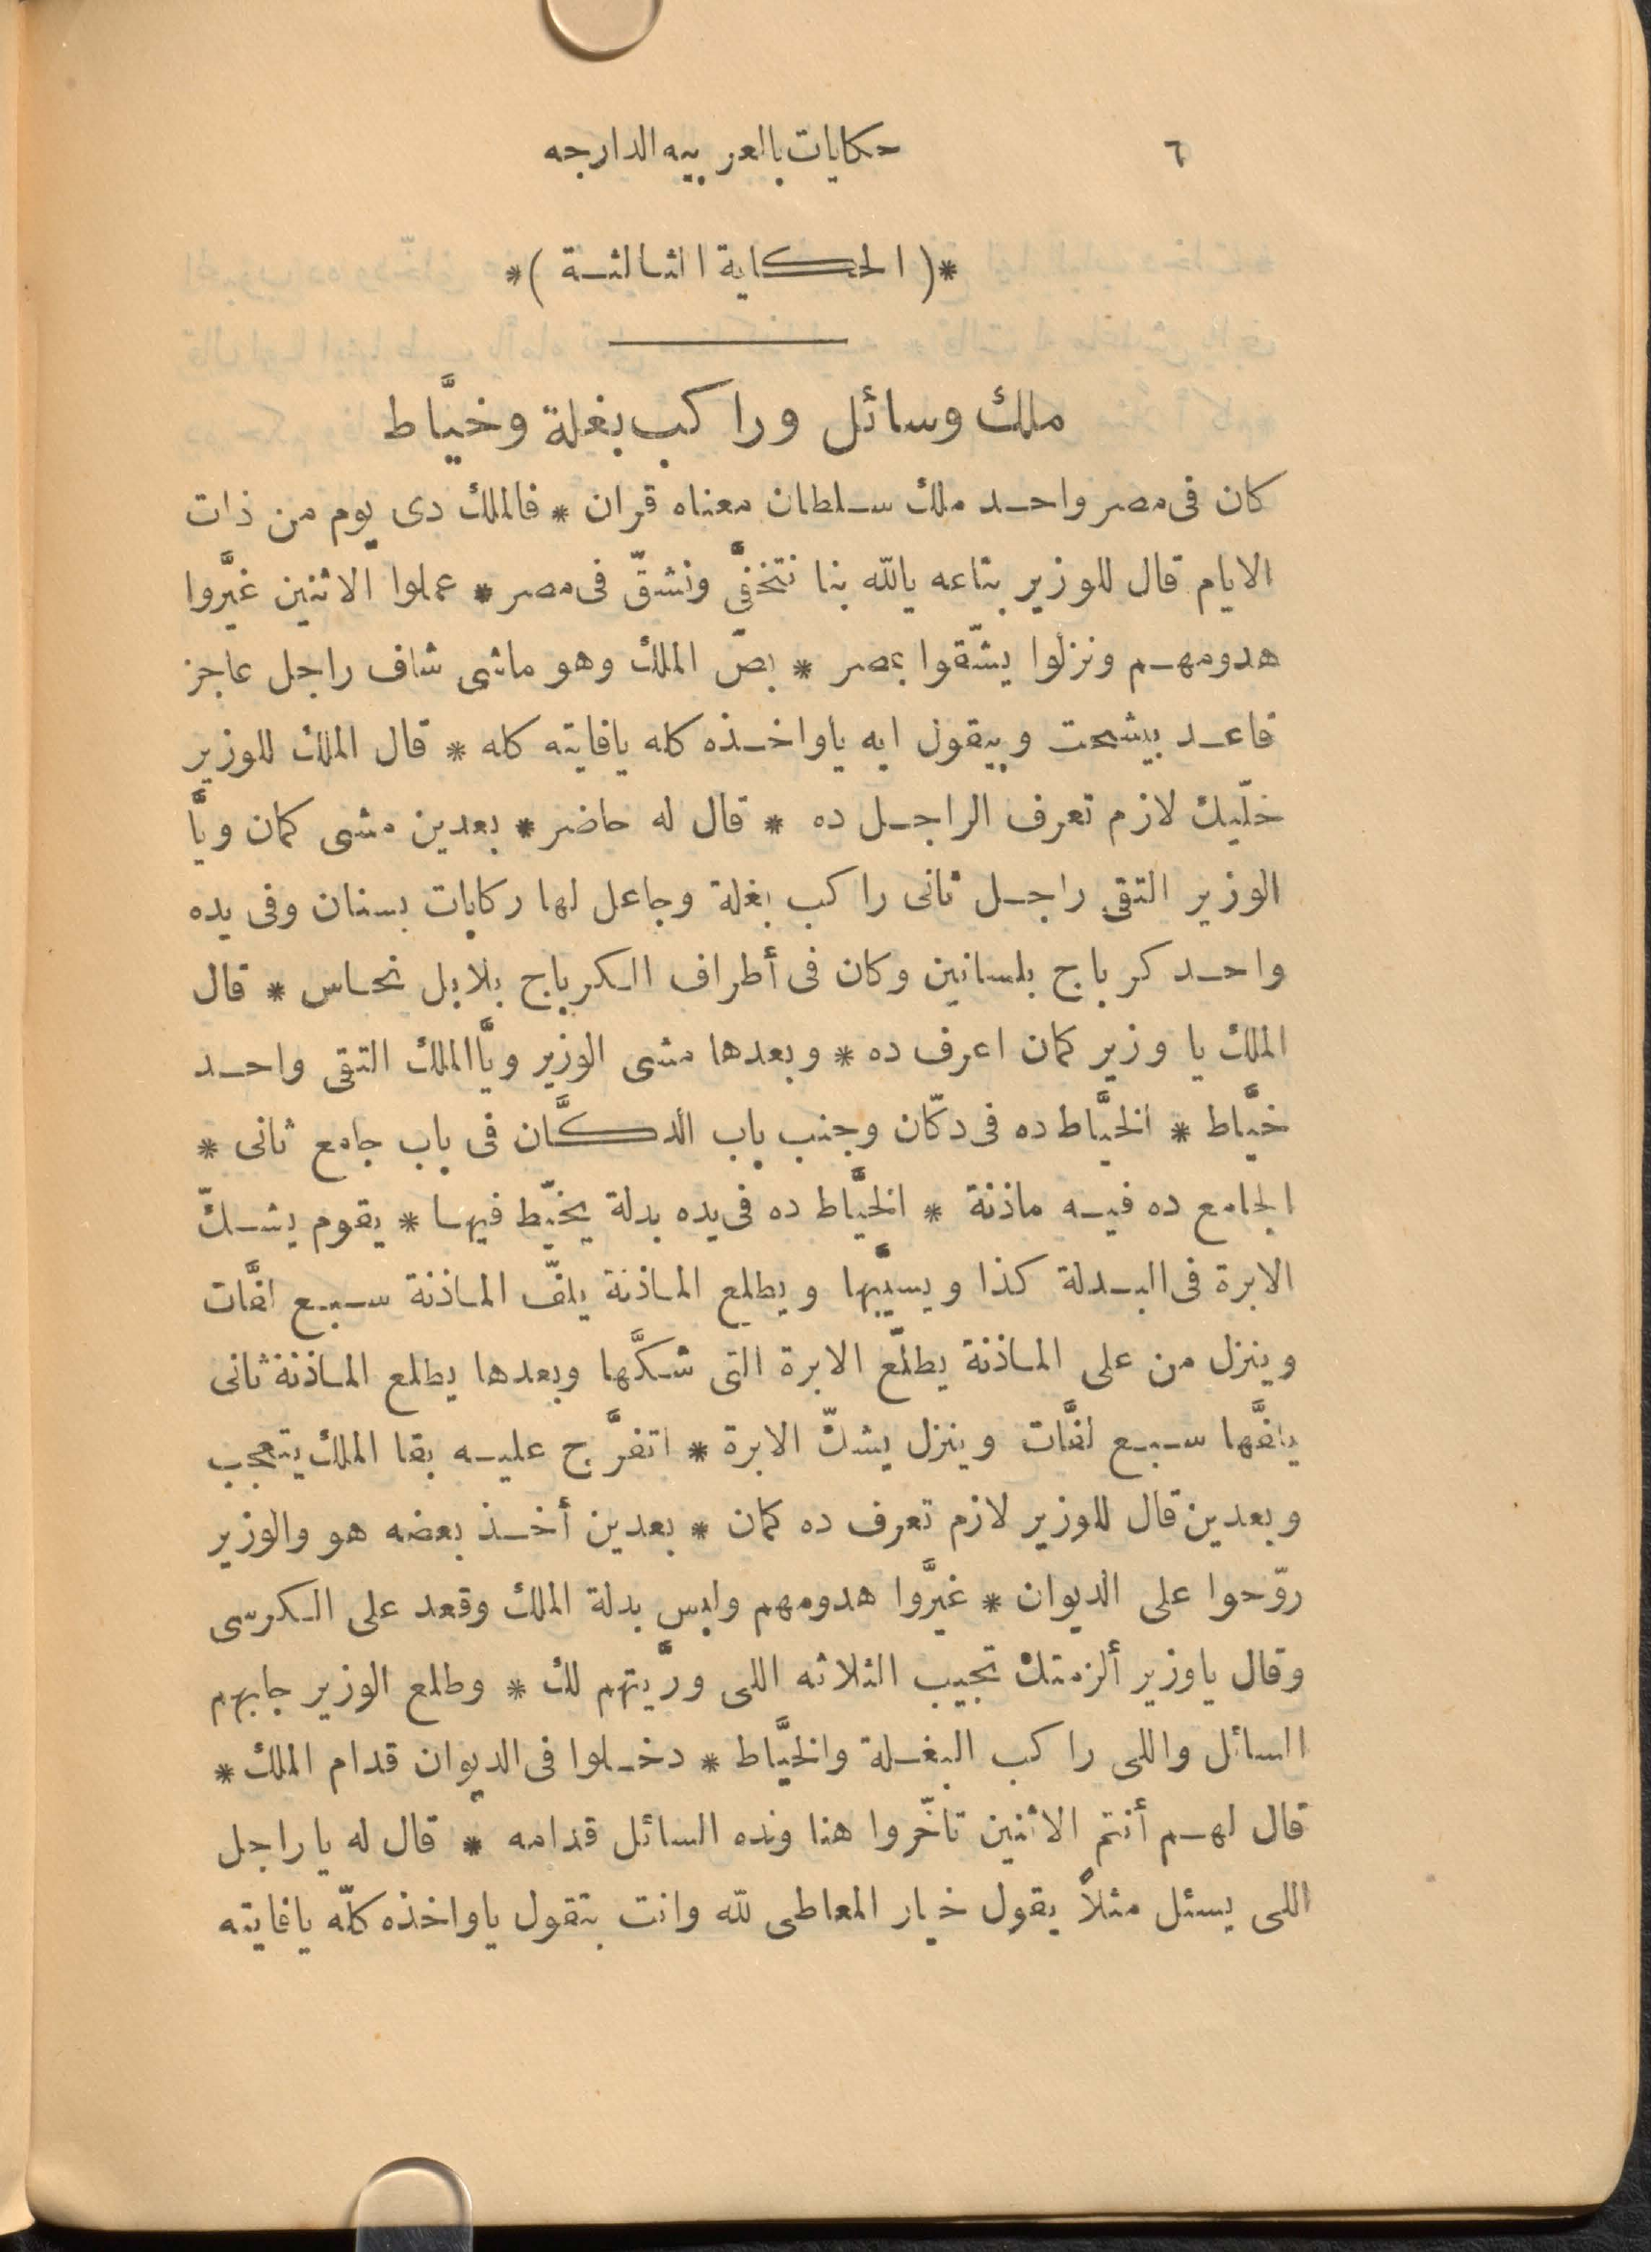 ٦ حكايات بالعربيه الدارجه
*( الحكاية الثالثة )*
ملك وسائل وراكب بغلة وخيَّاط
كان فى مصر واحد ملك سلطان معناه قران * فالملك دى يوم من ذات
الايام قال للوزير بتاعه يالله بنا نتخفَّى ونشقّ فى مصر * عملوا الاثنين غيَّروا
هدومهم ونزلوا يشّقوا بمصر * بصّ الملك وهو ماشى شاف راجل عاجز
قاعد بيشحت وبيقول ايه ياواخذه كله يافايته كله * قال الملك للوزير
خلّيك لازم تعرف الراجل ده * قال له حاضر * بعدين مشى كمان ويَّا
الوزير التقى راجل ثانى راكب بغلة وجاعل لها ركابات بسنان وفى يده
واحد كرباج بلسانين وكان فى أطراف الكرباج بلابل نحاس * قال
الملك يا وزير كمان اعرف ده * وبعدها مشى الوزير ويَّا الملك التقى واحد
خيَّاط * الخيَّاط ده فى دكّان وجنب باب الدكَّان فى باب جامع ثانى *
الجامع ده فيه ماذنة * الخيَّاط ده فى يده بدلة يخيّط فيها * يقوم يشكّ
الابرة فى البدلة كذا ويسيَّبها ويطلع الماذنة يلفّ الماذنة سبع لفَّات
وينزل من على الماذنة يطلَّع الابرة التى شكَّها وبعدها يطلع الماذنة ثانى
يلفَّها سبع لفَّات وينزل يشكّ الابرة * اتفرَّج عليه بقا الملك يتعجب
وبعدين قال للوزير لازم تعرف ده كمان * بعدين أخذ بعضه هو والوزير
روّحوا على الديوان * غيَّروا هدومهم ولبس بدلة الملك وقعد على الكرسى
وقال ياوزير ألزمتك تجيب الثلاثه اللى ورَّيتهم لك * وطلع الوزير جابهم
السائل واللى راكب البغلة والخيَّاط * دخلوا فى الديوان قدام الملك *
قال لهم أنتم الاثنين تأخّروا هنا ونده السائل قدامه * قال له ياراجل
اللى يسئل مثلاً يقول خيار المعاطى لله وانت بتقول ياواخذه كلّه يافايته